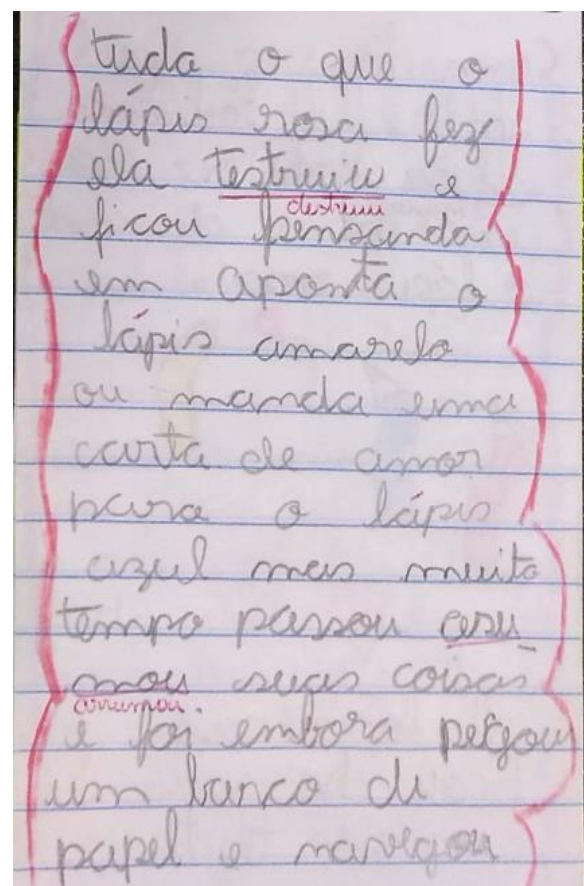 tuda o que o
lápis rosa fez
ela testruiu e
destruiu
ficou pensanda
em aponta o
lápis amarelo
ou manda uma
carta de amor
para o lápis
azul mas muito
tempo passou asu-
mou suas coisas
arrumou.
e foi embora pegou
um banco de
papel e navegou